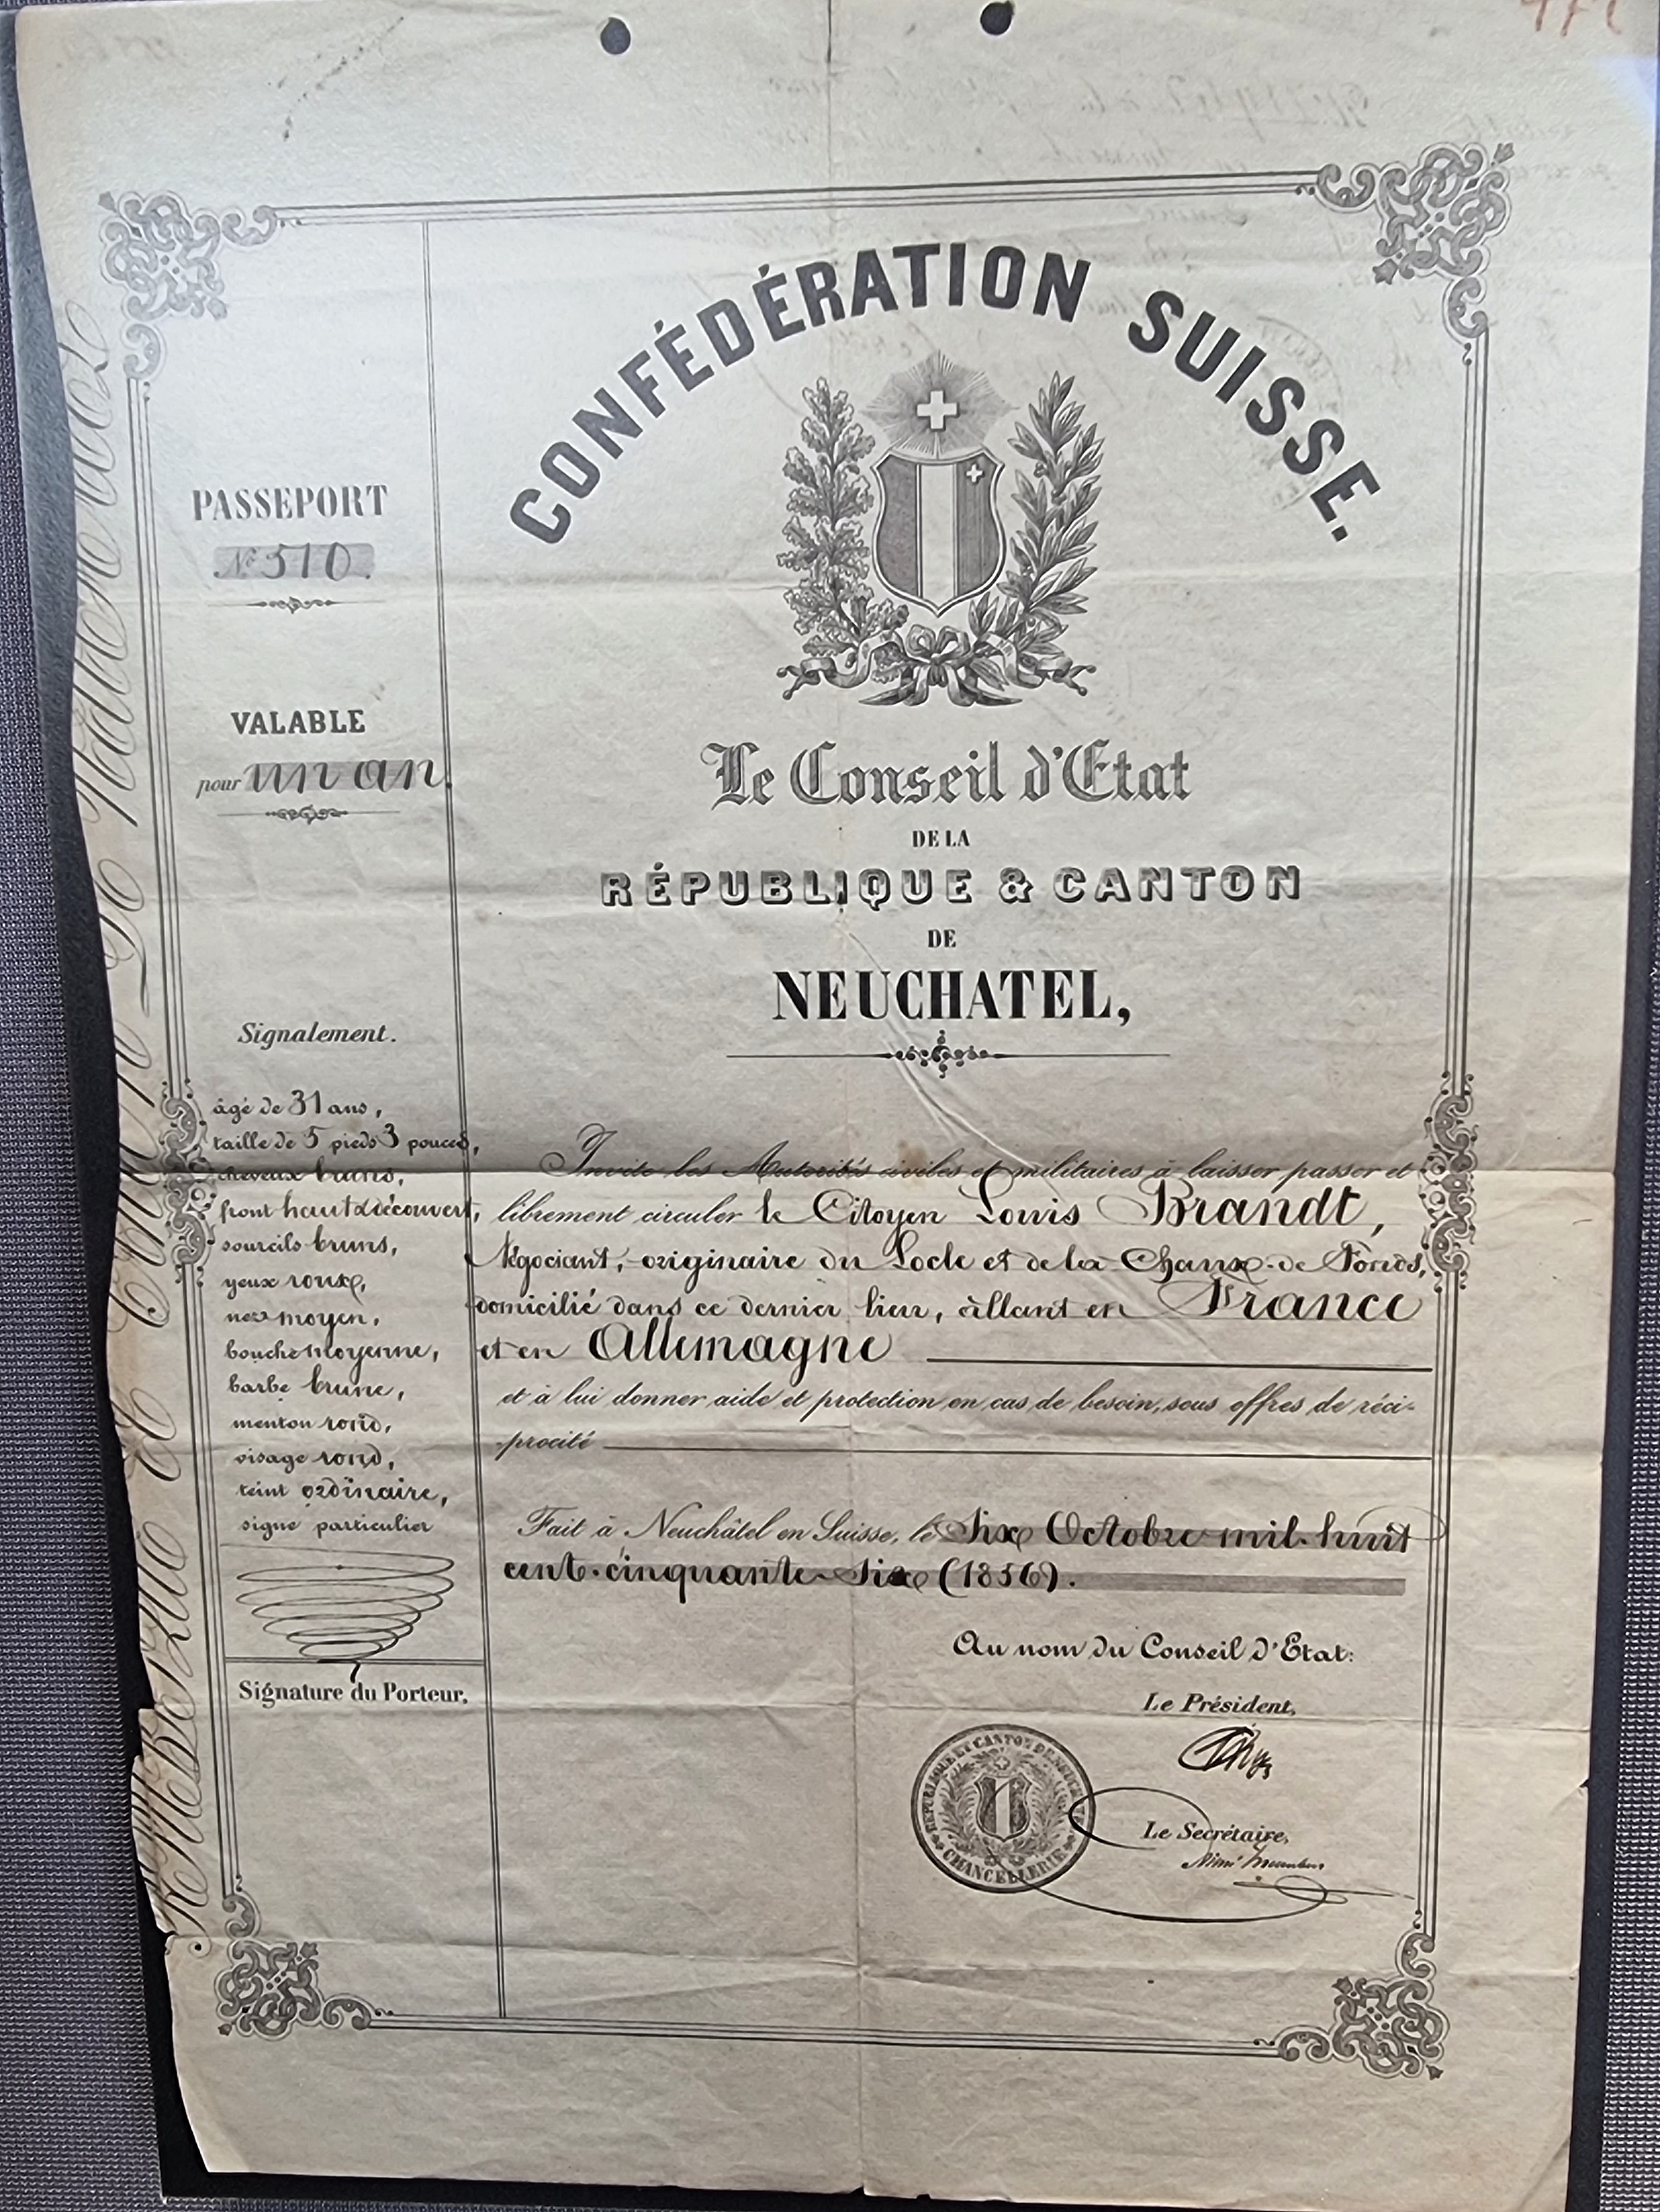 CONFÉDÉRATION SUISSE.
PASSEPORT
№ 510.
VALABLE
pour un an.
Le Conseil d'Etat
DE LA
RÉPUBLIQUE & CANTON
DE
NEUCHATEL,
Signalement.
âgé de 31 ans,
taille de 5 pieds 3 pouces,
cheveux bruns,
front haut & découvert,
sourcils bruns,
yeux roux,
nez moyen,
bouche moyenne,
barbe brune,
menton rond,
visage rond,
teint ordinaire,
signe particulier
Signature du Porteur.
Invite les Autorités civiles et militaires à laisser passer et
librement circuler le Citoyen Louis Brandt,
Négociant, originaire du Locle et de la Chaux-de-Fonds,
domicilié dans ce dernier lieu, allant en France
et en Allemagne
et à lui donner aide et protection en cas de besoin, sous offres de réci-
-procité
Fait à Neuchâtel en Suisse, le Six Octobre mil-huit
cent-cinquante-Six (1856).
Au nom du Conseil d'Etat:
Le Président,
Le Secrétaire,
RÉPUBLIQUE ET CANTON DE NEUCHATEL
CHANCELLERIE